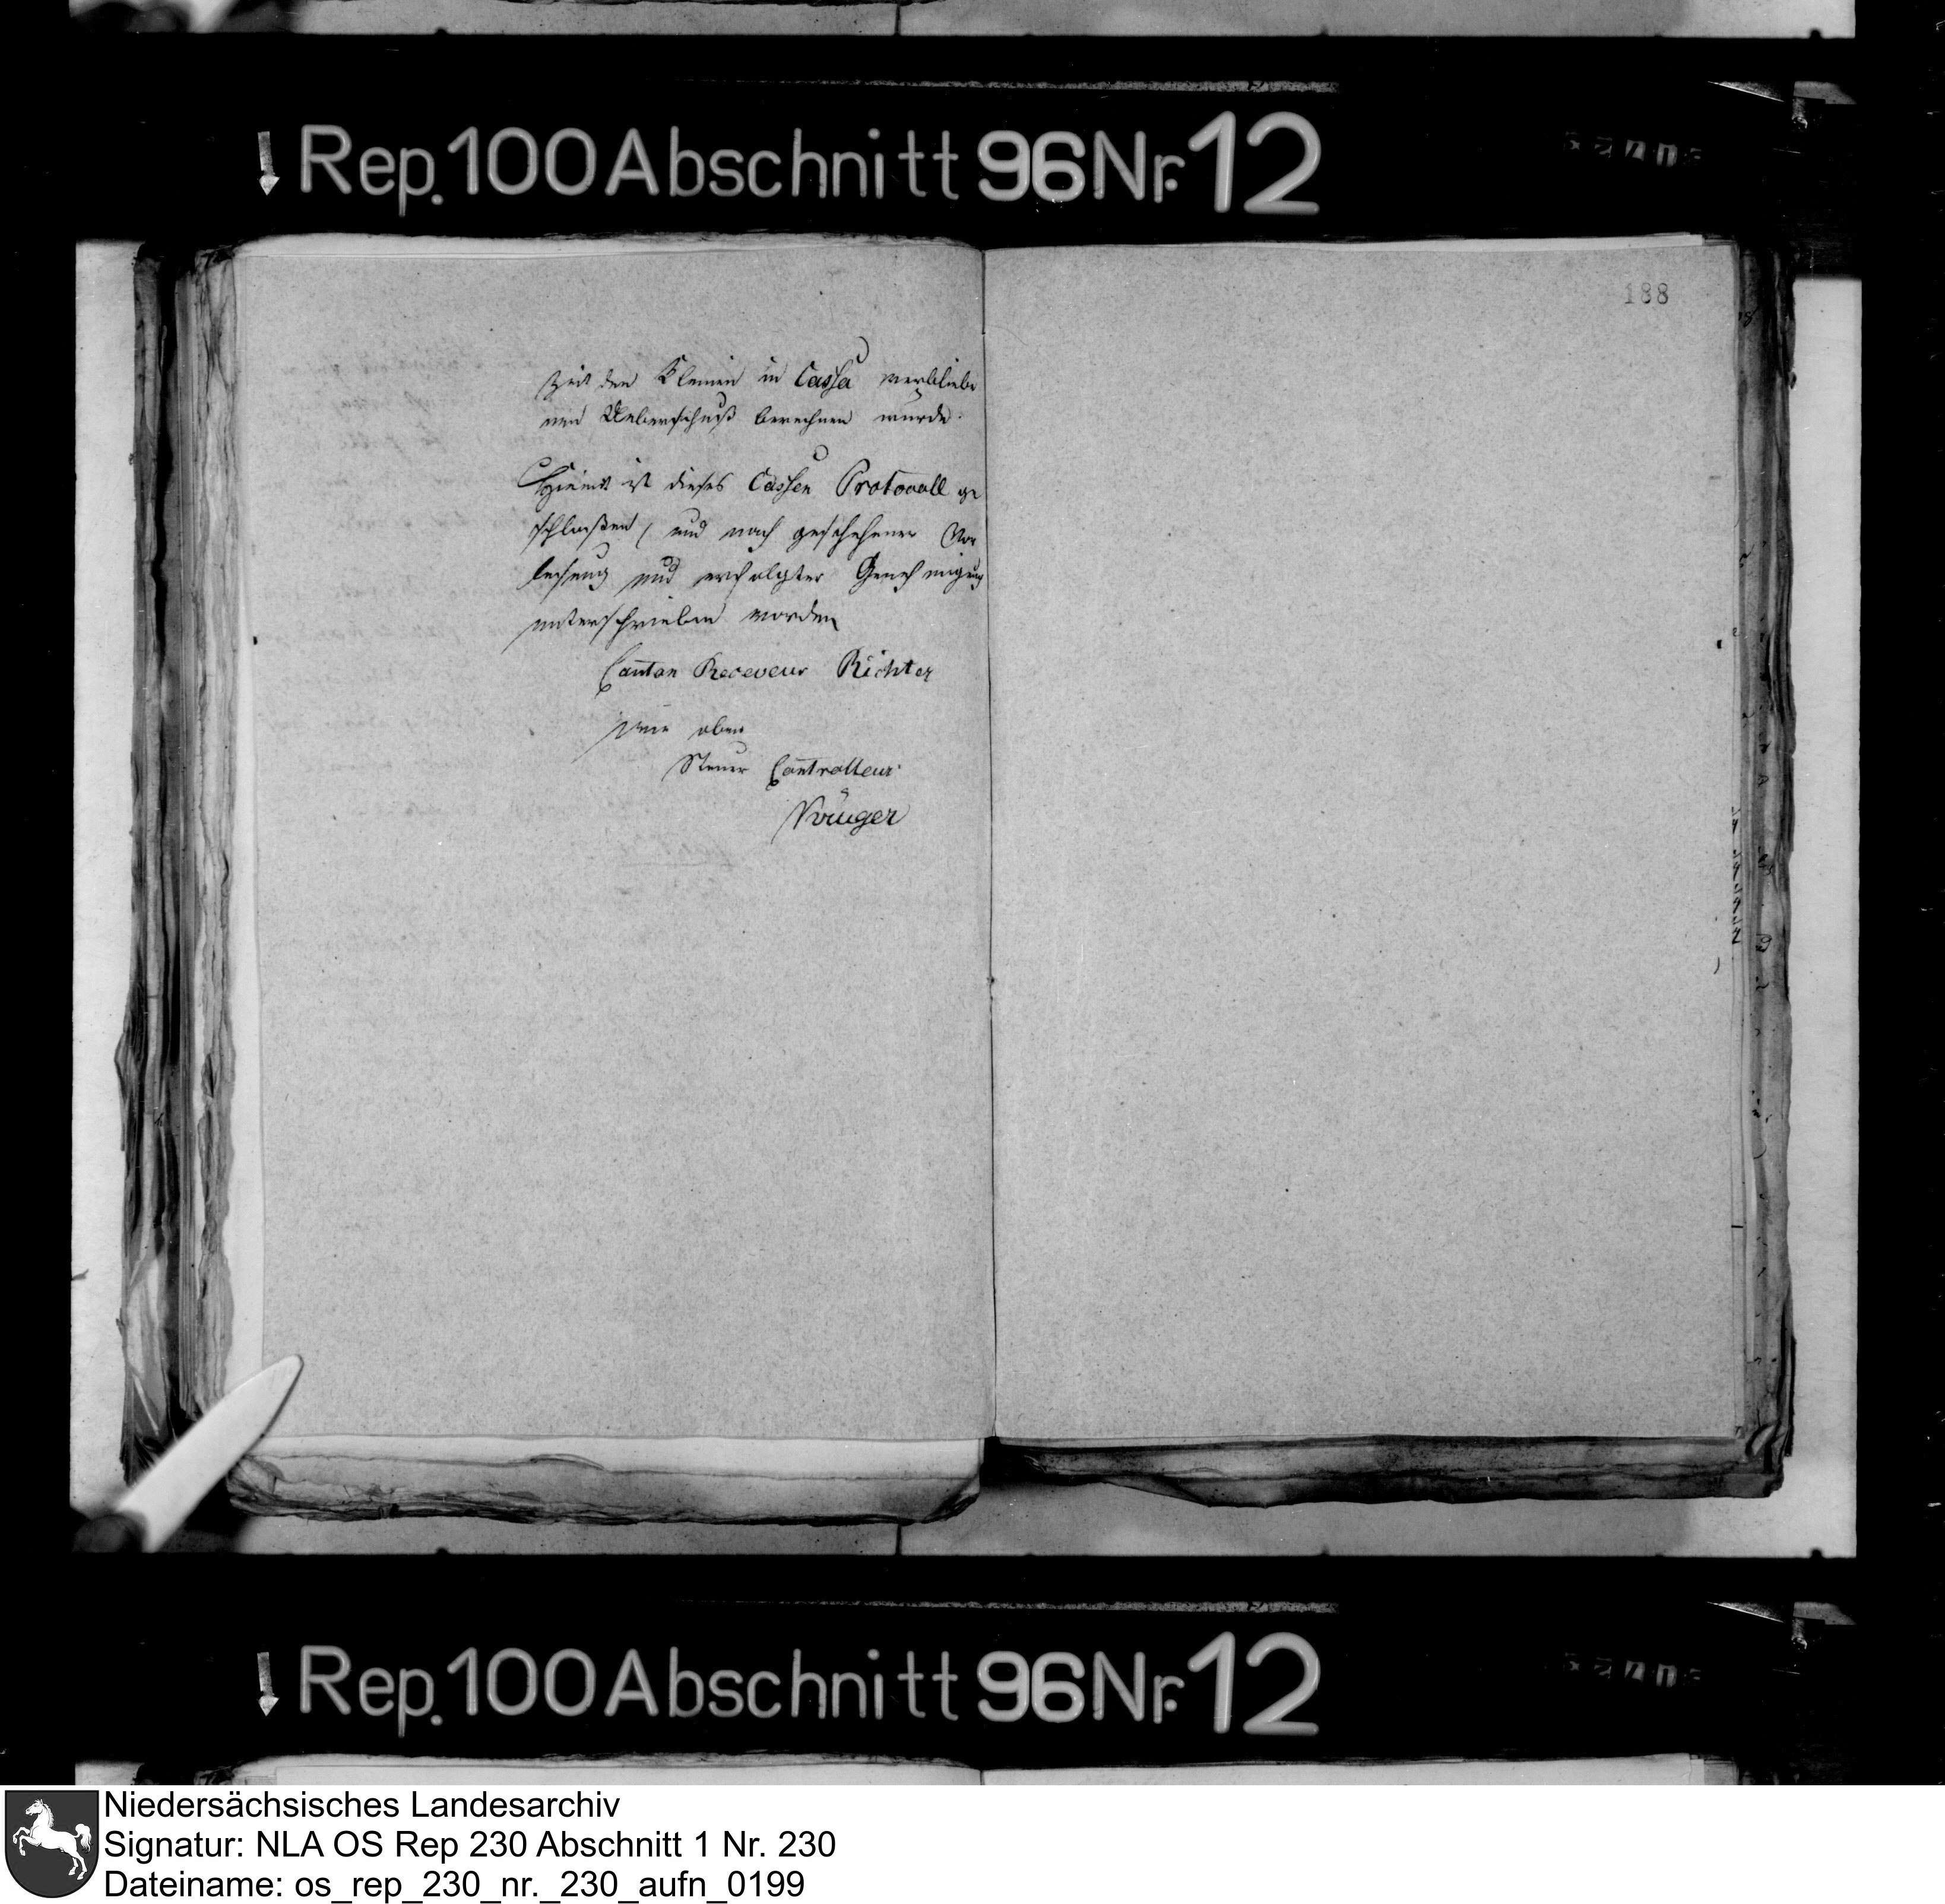 Rep. 100 Abschnitt 96 Nr. 12
188
Zeit den kleinen in Cassa verbliebe
nen Ueberschuß berechnen wurde.
Hiemit ist dieses Cassen Protocoll ge
schloßen, und nach geschehener Vor
lesung und erfolgter Genehmigung
unterschrieben worden
Canton Receveur Richter
wie oben
Steuer Controlleur
Krüger
Rep. 100 Abschnitt 96 Nr. 12
Niedersächsisches Landesarchiv
Signatur: NLA OS Rep 230 Abschnitt 1 Nr. 230
Dateiname: os_rep_230_nr._230_aufn_0199